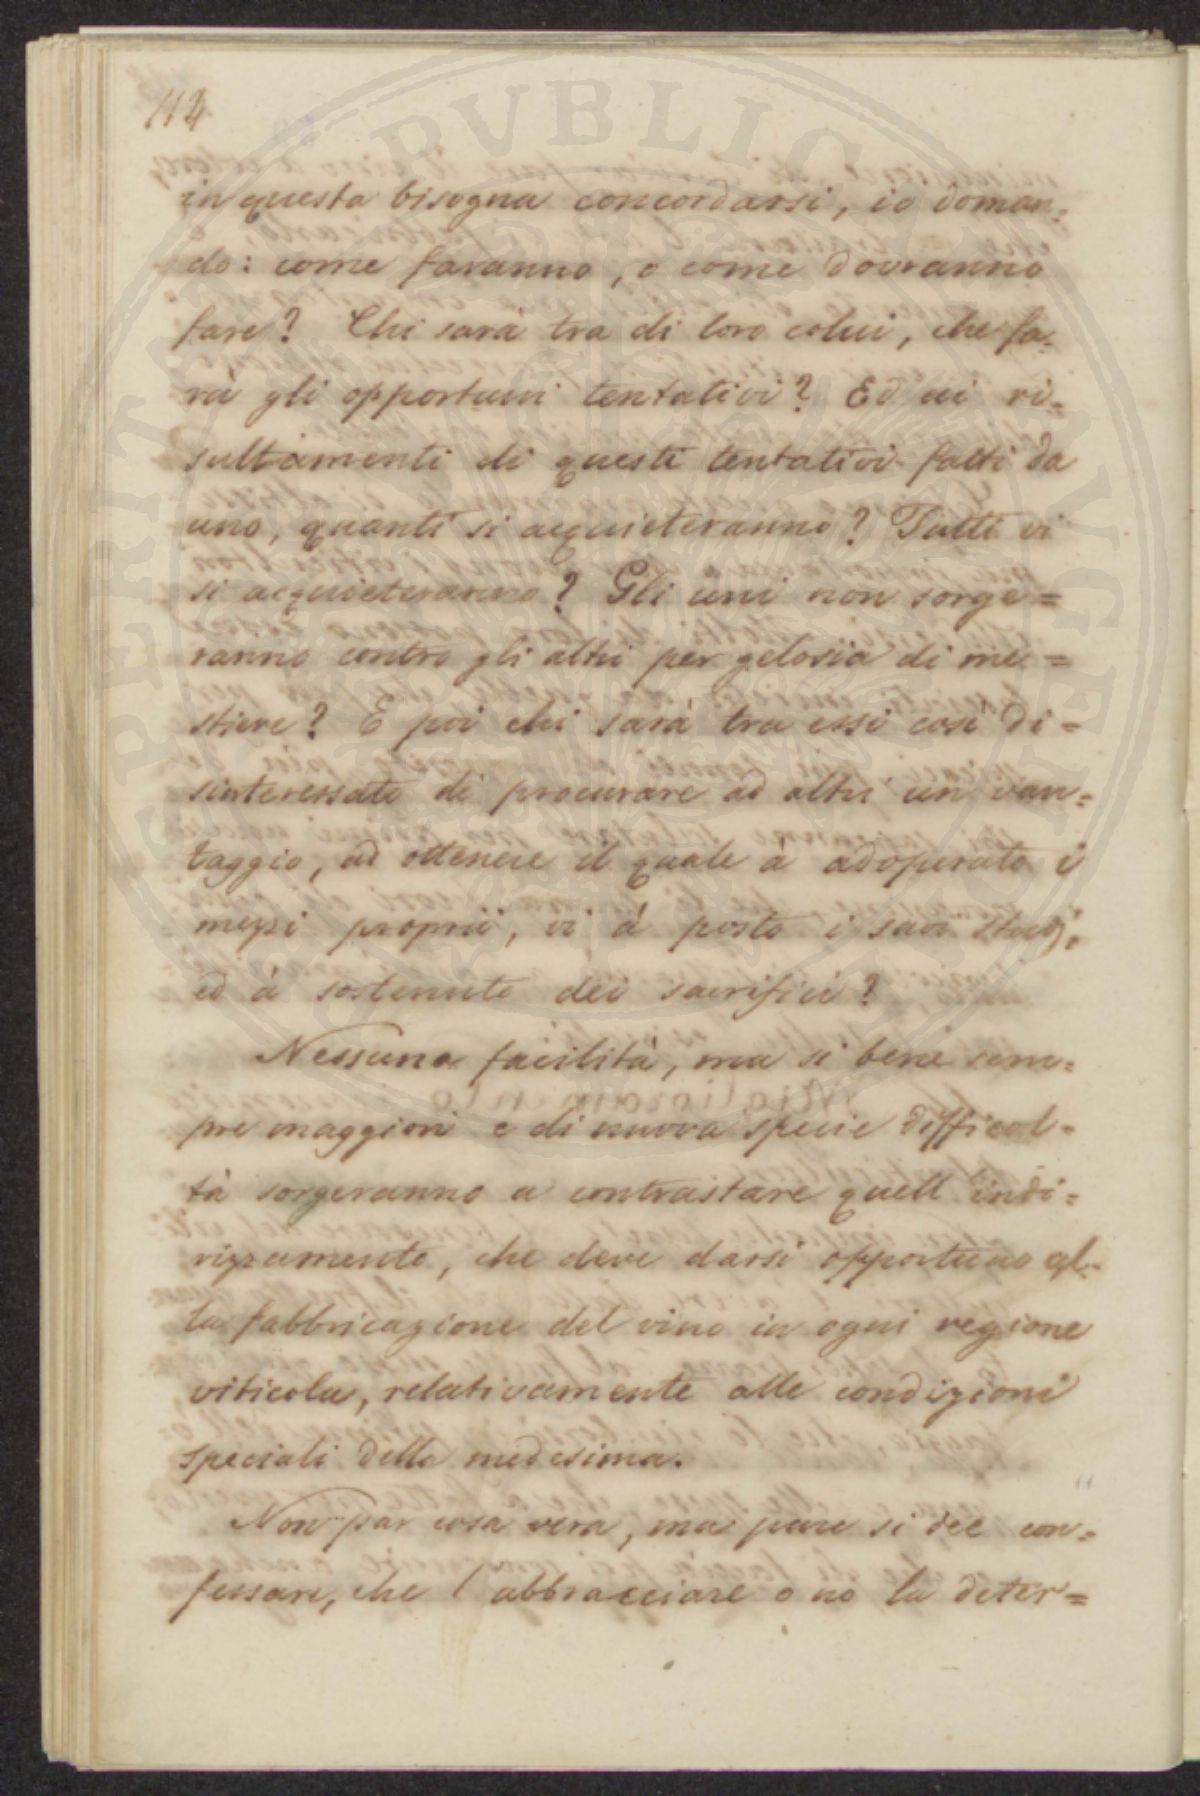 114
in questa bisogna concordarsi, io doman=
do: come faranno, o come dovranno
fare? Chi sarà tra di loro colui, che fa=
rà gli opportuni tentativi? Ed ai ri=
sultamenti di questi tentativi fatti da
uno, quanti si acquieteranno? Tutti vi
si acquieteranno? Gli uni non sorge=
ranno contro gli altri per gelosia di me=
stiere? E poi chi sarà tra essi così di=
sinteressato di procurare ad altri un van=
taggio, ad ottenere il quale à adoperato i
mezzi proprii, vi à posto i suoi studj,
ed à sostenuto dei sacrifici?
Nessuna facilità, ma si bene sem=
pre maggiori e di nuova specie difficol=
tà sorgeranno a contrastare quell'indi=
rizzamento, che deve darsi opportuno al=
la fabbricazione del vino in ogni regione
viticola, relativamente alle condizioni
speciali della medesima.
Non par cosa vera, ma pure si dee con=
fessare, che l'abbracciare o no la deter=